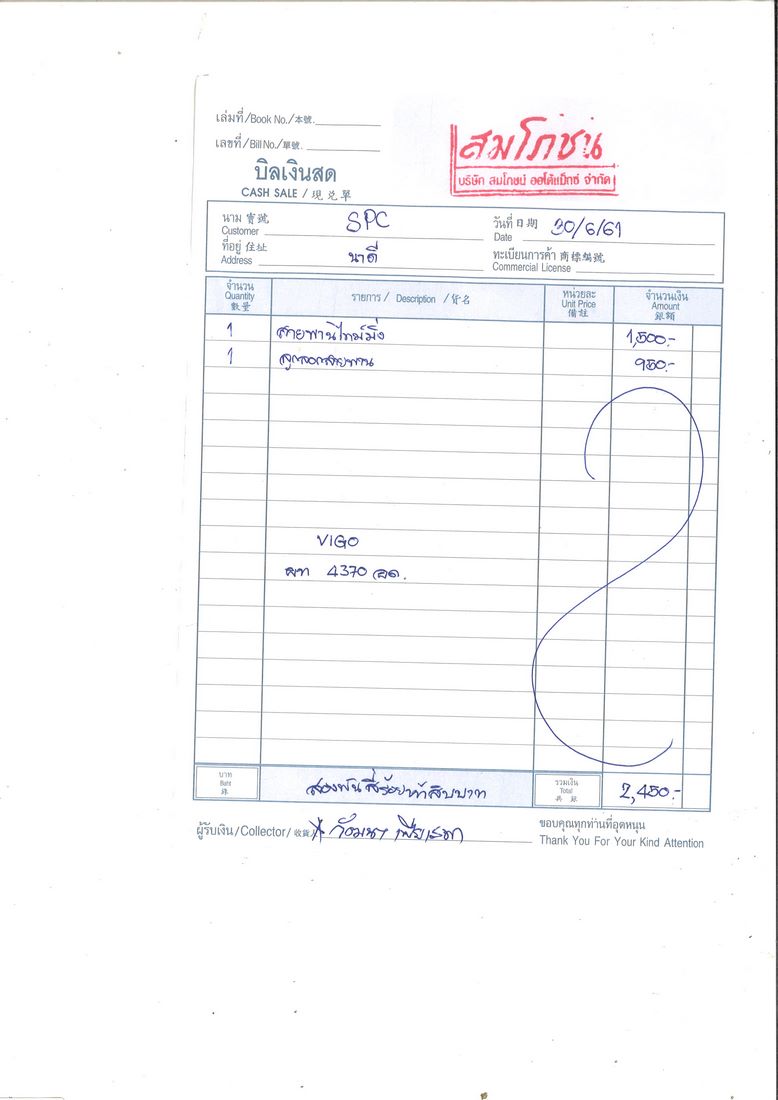 เล่มที่/Book No./本號.
เลขที่/Bill No./單號.
บิลเงินสด
CASH SALE / 現兑單
สมโภชน์
บริษัท สมโภชน์ ออโต้แม็กซ์ จำกัด
นาม 寶號 SPC วันที่ 日期 30/6/61
Customer Date
ที่อยู่ 住址 นาดี ทะเบียนการค้า 商標編號
Address Commercial License
จำนวน รายการ / Description / 貨名 หน่วยละ จำนวนเงิน
Quantity Unit Price Amount
數量 備註 銀額
1 สายพานไทม์มิ่ง 1,500.-
1 ลูกรอกสายพาน 950.-
VIGO
ผท 4370 อด.
บาท สองพันสี่ร้อยห้าสิบบาท รวมเงิน 2,450.-
Baht Total
銖 共銀
ผู้รับเงิน/Collector/收貨人 ขอบคุณทุกท่านที่อุดหนุน
Thank You For Your Kind Attention